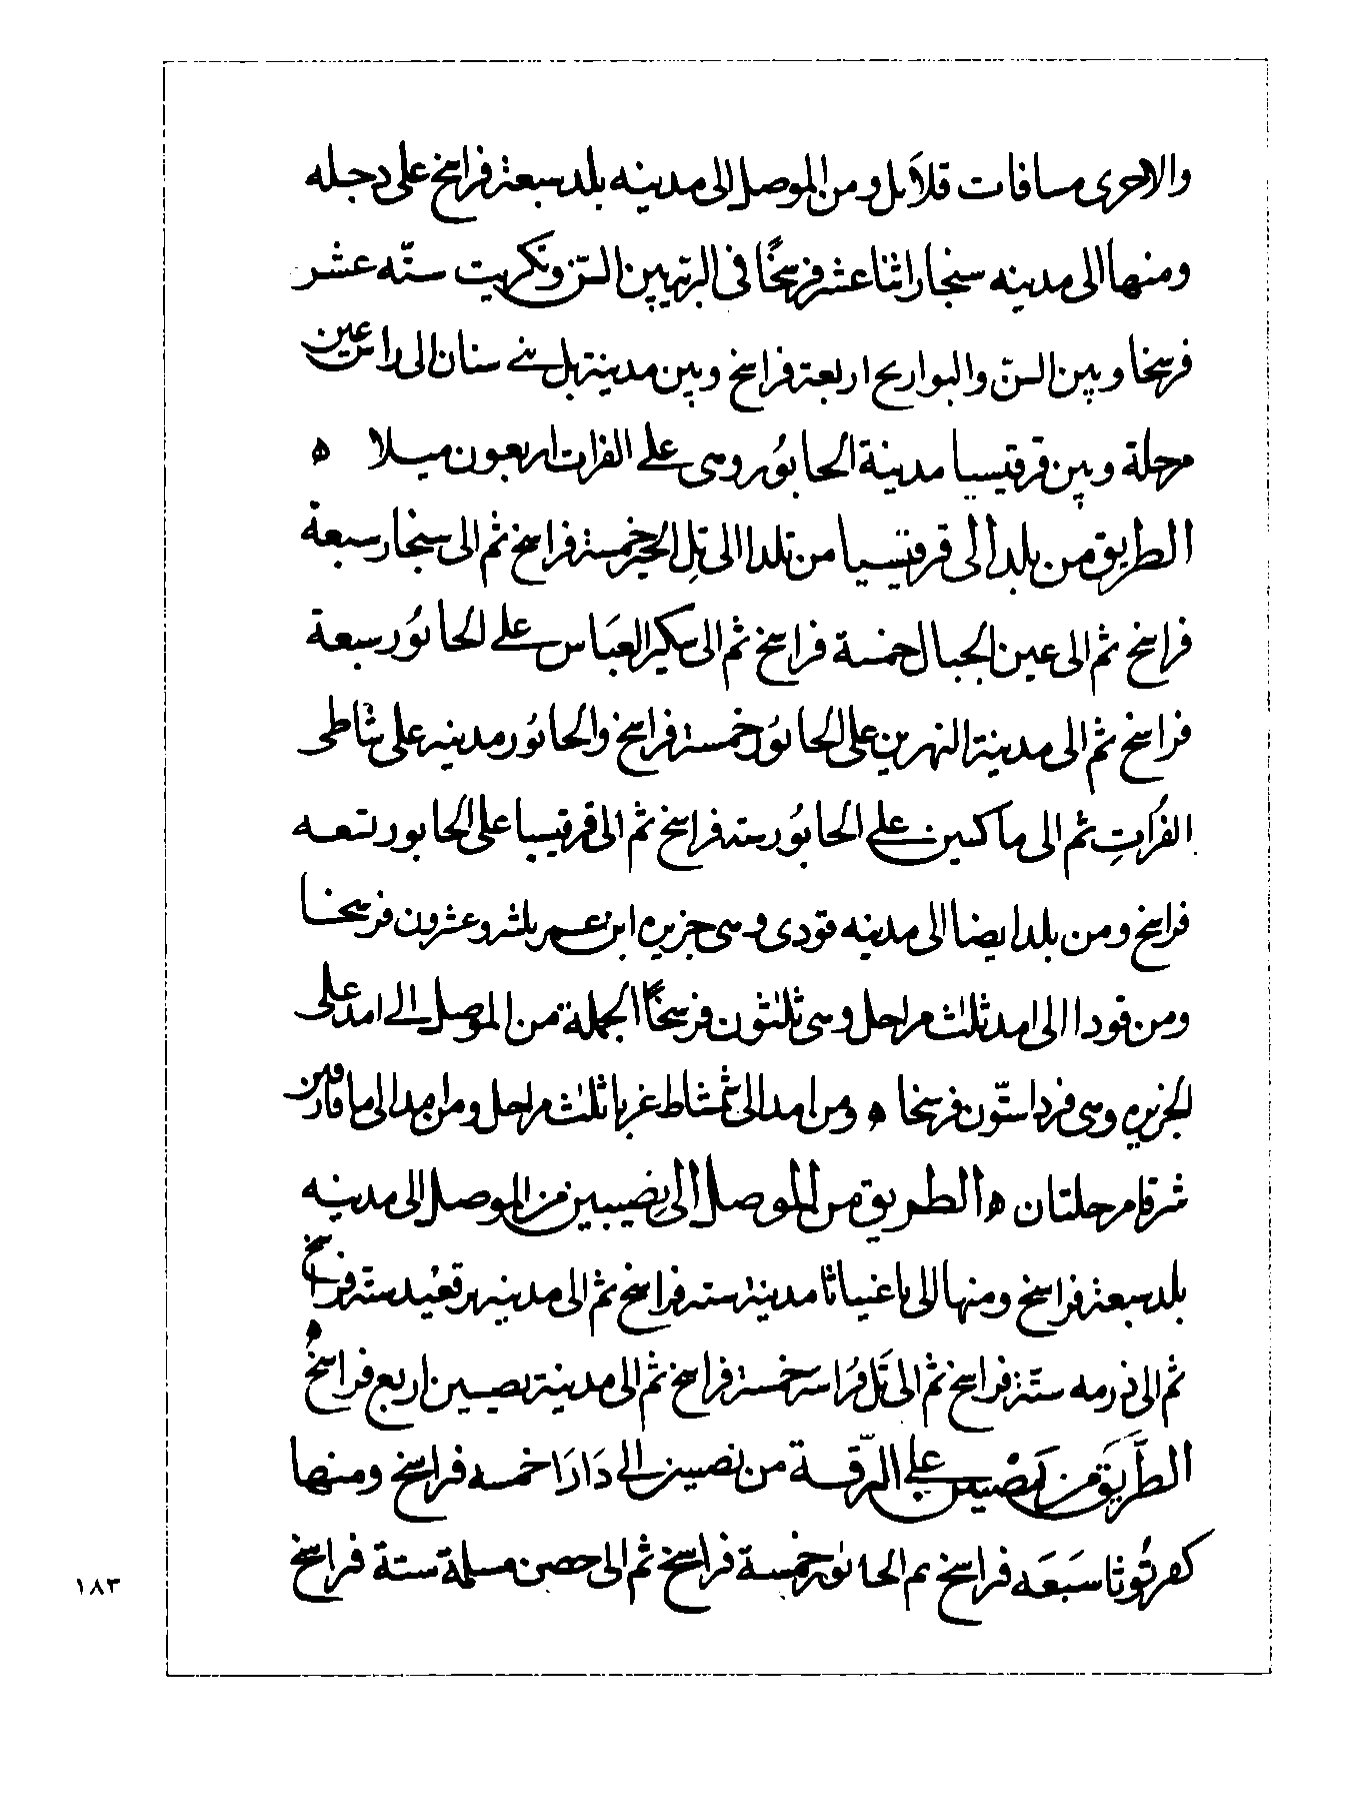 والاخرى مسافات قلائل ومن الموصل الى مدينه بلد سبعة فراسخ على دجله
ومنها الى مدينه سنجار اثنا عشر فرسخًا فى البر وبين السنّ وتكريت ستّه عشر
فرسخا وبين السنّ والبواريح اربعة فراسخ وبين مدينة تل بنى سنان الى راس عين
مرحلة وبين قرقيسيا مدينة الخابُور وهى على الفرات اربعون ميلا ه
الطريق من بلد الى قرقيسيا من بلد الى تل الحير خمسة فراسخ ثم الى سنجار سبعة
فراسخ ثم الى عين الجبال خمسة فراسخ ثم الى سكير العَباس على الخابُور سبعة
فراسخ ثم الى مدينة النهرين على الخابُور خمسة فراسخ والخابُور مدينه على شاطى
الفرات ثم الى ماكسين على الخابُور سته فراسخ ثم الى قرقيسيا على الخابور سبعه
فراسخ ومن بلد ايضا الى مدينه قودى وهى جزيره ابن عمر ثلثه وعشرون فرسخا
ومن قودا الى امد ثلاث مراحل وهى ثلثون فرسخًا الجملة من الموصل الى امد على
الجزيره وهى فردا ستّون فرسخا ه ومن امد الى شمشاط غربا ثلاث مراحل ومن امد الى ميافارقين
شرقا مرحلتان ه الطريق من الموصل الى نصيبين من الموصل الى مدينه
بلد سبعة فراسخ ومنها الى باغيناثا مدينة سته فراسخ ثم الى مدينه برقعيد ستة فراسخ
ثم الى اذرمه ستّة فراسخ ثم الى تَل فُراسه خمسة فراسخ ثم الى مدينة نصيبين اربع فراسخ ه
الطَّريق من نَصْيبين على الرّقة من نصيبين الى دَارَا خمسه فراسخ ومنها
كفرتُوثا سَبَعَه فراسخ ثم الخابور خمسة فراسخ ثم الى حصن مسلمة ستة فراسخ
١٨٣